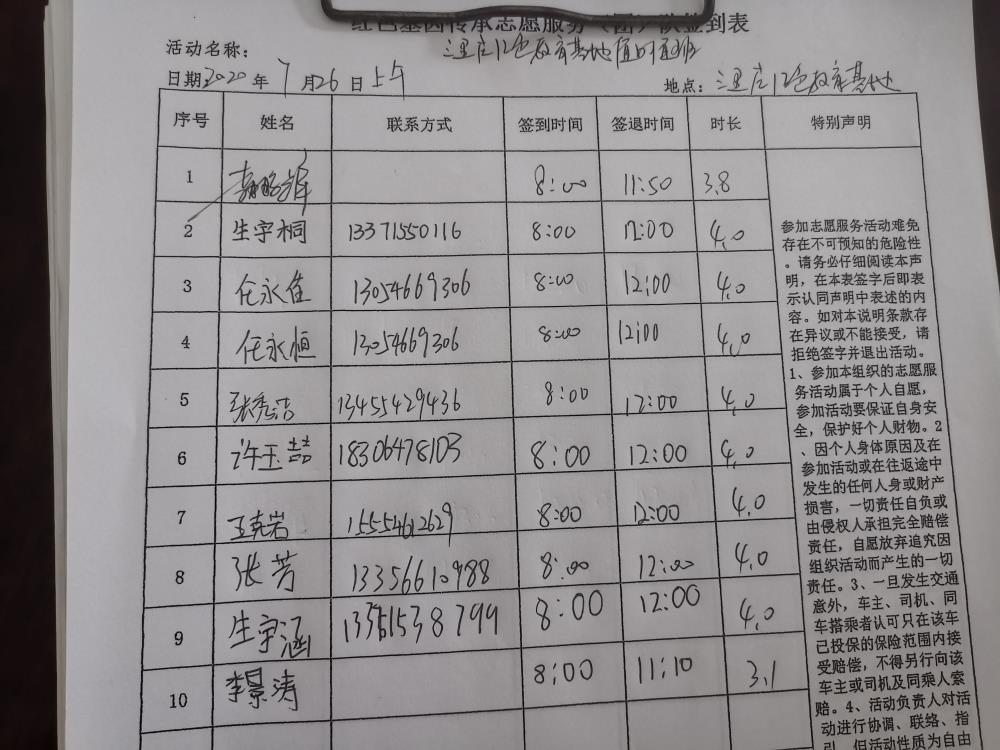 红色基因传承志愿服务（团）队签到表
活动名称：三里庄红色教育基地值时通知
日期2020年7月26日上午 地点：三里庄红色教育基地
序号 姓名 联系方式 签到时间 签退时间 时长 特别声明
1 8:00 11:50 3.8
2 生宇桐 13371550116 8:00 12:00 4.0
3 任永佳 13054669306 8:00 12:00 4.0
4 任永恒 13054669306 8:00 12:00 4.0
5 张秀洁 13455429436 8:00 12:00 4.0
6 许玉喆 18306478103 8:00 12:00 4.0
7 王克岩 15554612629 8:00 12:00 4.0
8 张芳 13356610988 8:00 12:00 4.0
9 生宇涵 8:00 12:00 4.0
10 李景涛 8:00 11:10 3.1
参加志愿服务活动难免
存在不可预知的危险性
。请务必仔细阅读本声
明，在本表签字后即表
示认同声明中表述的内
容。如对本说明条款存
在异议或不能接受，请
拒绝签字并退出活动。
1、参加本组织的志愿服
务活动属于个人自愿，
参加活动要保证自身安
全，保护好个人财物。2
、因个人身体原因及在
参加活动或在往返途中
发生的任何人身或财产
损害，一切责任自负或
由侵权人承担完全赔偿
责任，自愿放弃追究因
组织活动而产生的一切
责任。3、一旦发生交通
意外，车主、司机、同
车搭乘者认可只在该车
已投保的保险范围内接
受赔偿，不得另行向该
车主或司机及同乘人索
赔。4、活动负责人对活
动进行协调、联络、指
引，但活动性质为自由